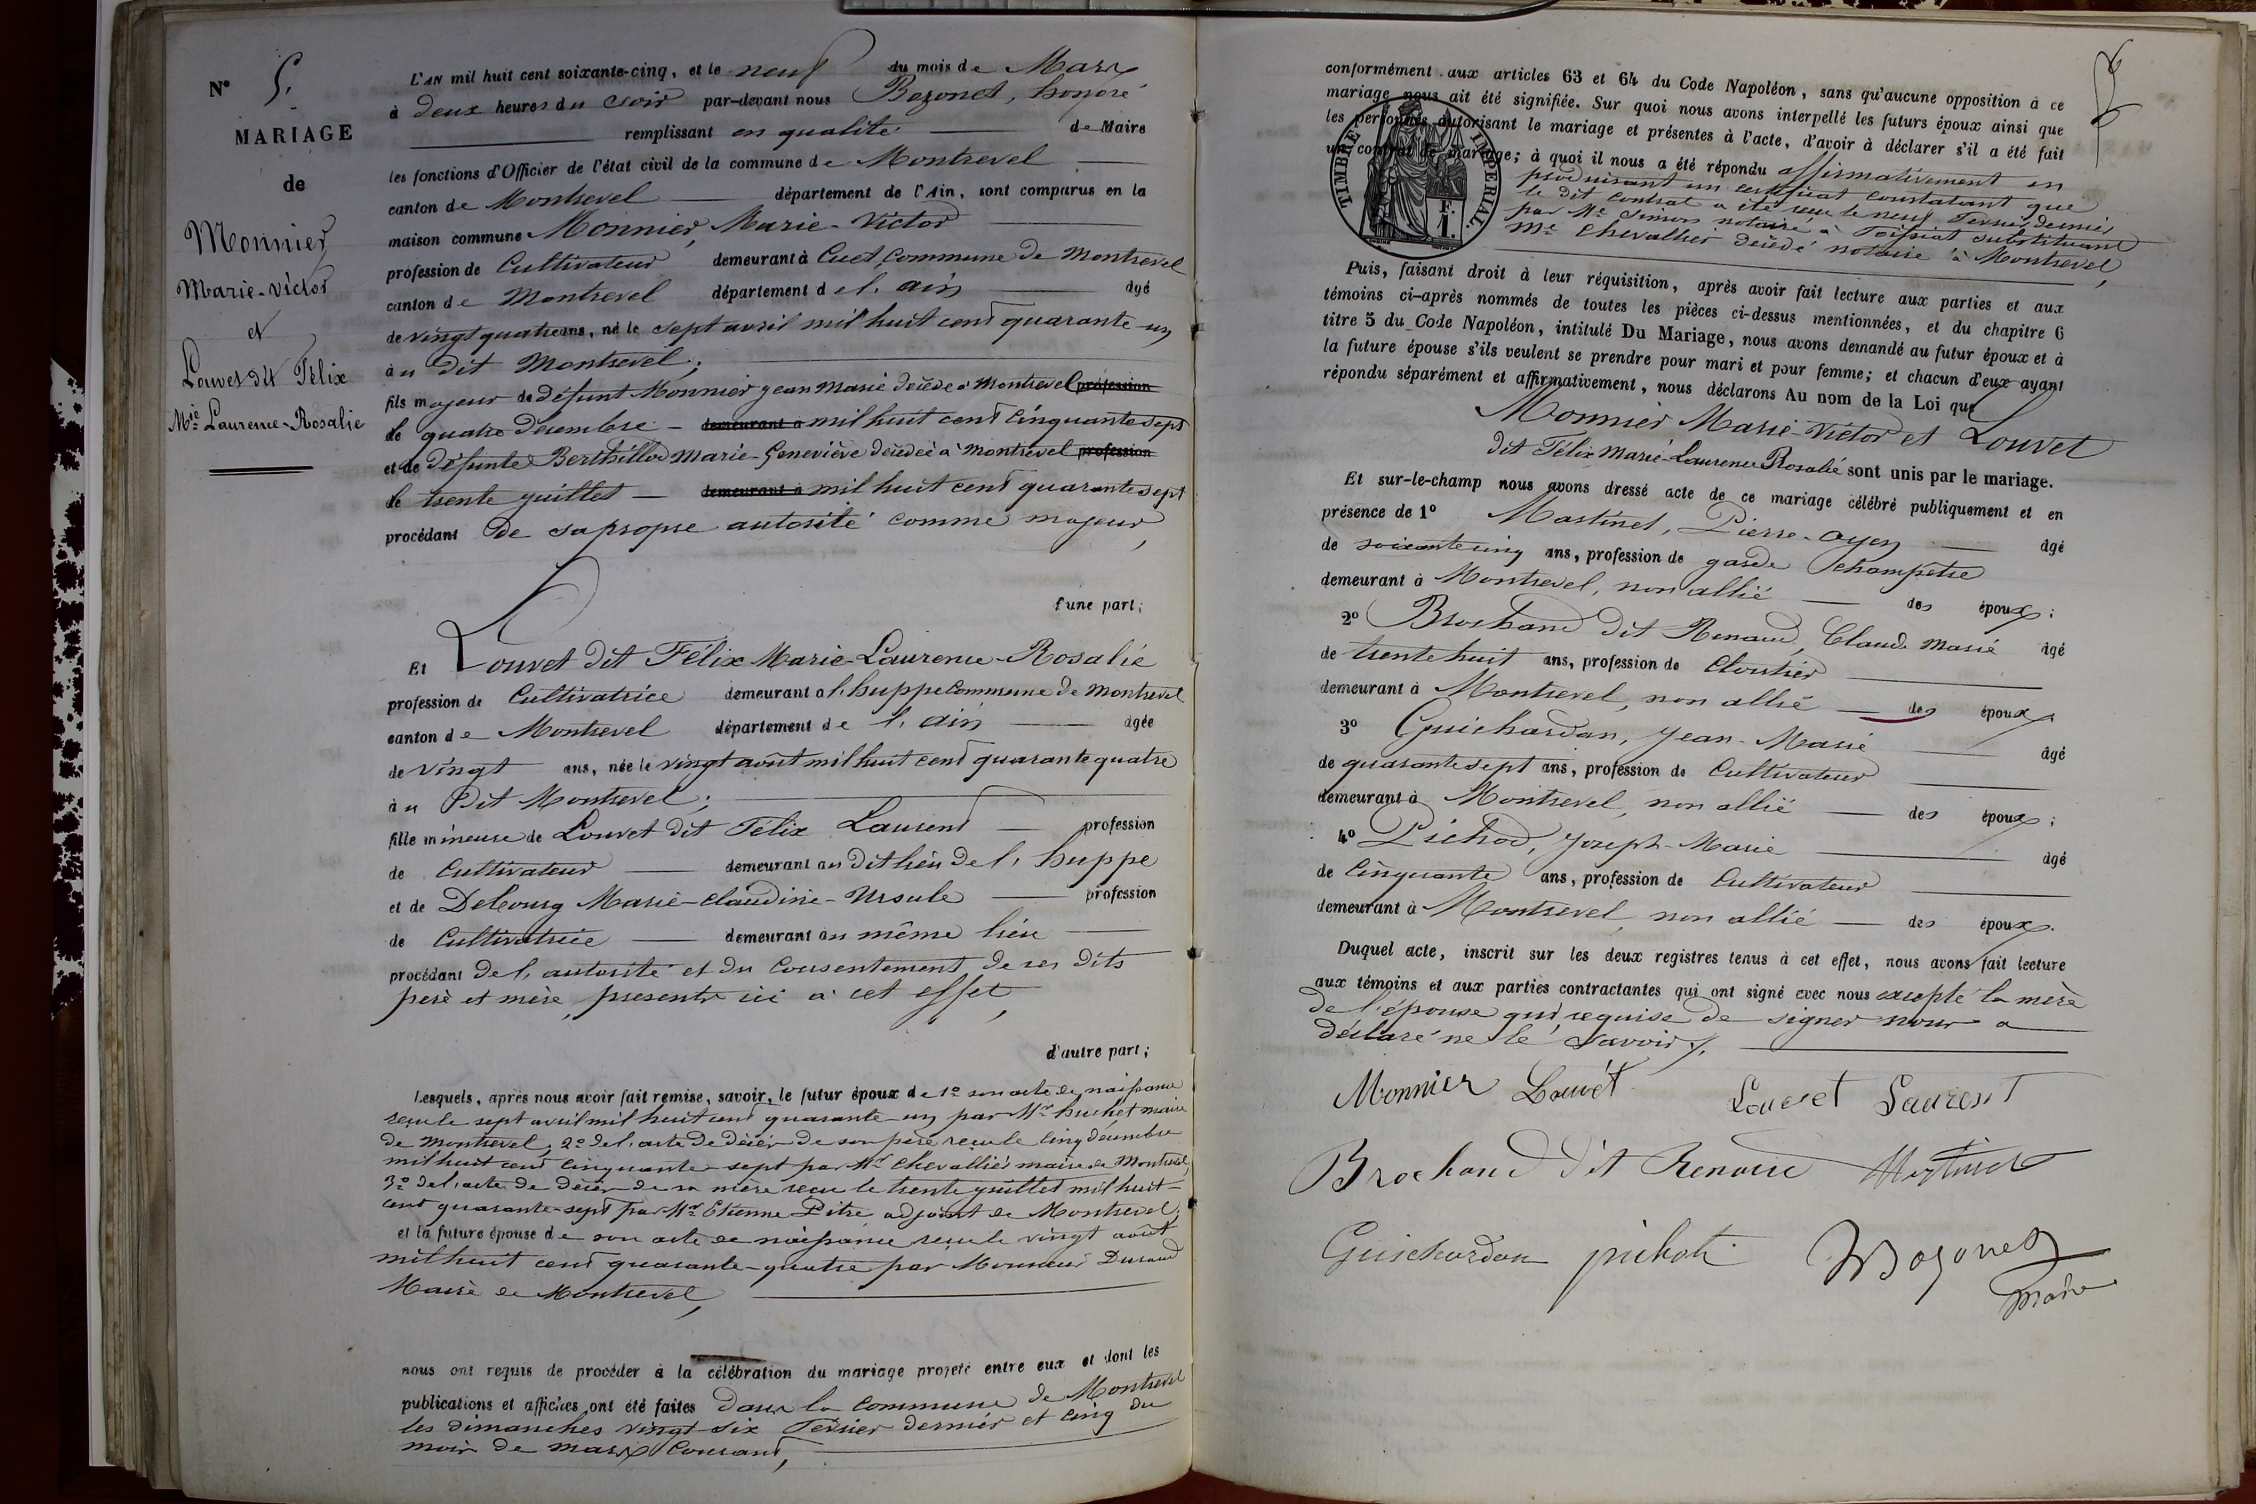 N° 5.
MARIAGE
de
Monnier
Marie-Victor
et
Louvet dit Félix
Mie Laurence-Rosalie
L'AN mil huit cent soixante-cinq, et le neuf du mois de Mars
à deux heures du soir par-devant nous Bozonet, honoré
remplissant en qualité de Maire
les fonctions d'Officier de l'état civil de la commune de Montrevel
canton de Montrevel département de l'Ain, sont comparus en la
maison commune Monnier, Marie-Victor
profession de Cultivateur demeurant à Cuet, commune de Montrevel
canton de Montrevel département de l'ain âgé
de vingt quatre ans, né le sept avril mil huit cent quarante-un
à u dit Montrevel;
fils majeur de défunt Monnier jean Marie décédé à Montrevel profession
de quatre Décembre - demeurant à mil huit cent Cinquante sept
et de défunte Berthillod Marie-Geneviève décédée à Montrevel profession
de trente juillet - demeurant à mil huit cent quarante sept
procédant de sa propre autorité comme majeur,
d'une part;
Et Louvet dit Félix Marie-Laurence-Rosalie
profession de Cultivatrice demeurant à l'huppe Commune de Montrevel
canton de Montrevel département de l'ain âgée
de vingt ans, née le vingt août mil huit cent quarante quatre
à u Dit Montrevel;
fille mineure de Louvet dit Félix Laurent profession
de Cultivateur demeurant au dit lieu de l'huppe
et de Delcourg Marie-Claudine-Ursule profession
de Cultivatrice demeurant au même lieu
procédant de l'autorité et du Consentement de ses dits
père et mère, présents ici à cet effet,
d'autre part;
Lesquels, après nous avoir fait remise, savoir, le futur époux de 1° son acte de naissance
reçu le sept avril mil huit cent quarante-un par Mr huchet maire
de Montrevel, 2° de l'acte de décès de son père reçu le Cinq décembre
mil huit cent Cinquante-sept par Mr Chevallier maire de Montrevel,
3° de l'acte de décès de sa mère reçu le trente juillet mil huit-
cent quarante-sept par Mr Etienne Pitre adjoint de Montrevel;
et la future épouse de son acte de naissance reçu le vingt août
mil huit cent quarante-quatre par Monsieur Durand
Maire de Montrevel,
nous ont requis de procéder à la célébration du mariage projeté entre eux et dont les
publications et affiches ont été faites dans la commune de Montrevel
les dimanches vingt-six Février dernier et Cinq du
mois de mars Courant,
conformément aux articles 63 et 64 du Code Napoléon, sans qu'aucune opposition à ce
mariage nous ait été signifiée. Sur quoi nous avons interpellé les futurs époux ainsi que
les personnes autorisant le mariage et présentes à l'acte, d'avoir à déclarer s'il a été fait
un contrat de mariage; à quoi il nous a été répondu affirmativement en
produisant un certificat constatant que
le dit contrat a été reçu le neuf Février dernier
par Me Simon notaire à Foissiat substituant
Me Chevallier décédé notaire à Montrevel,
TIMBRE IMPÉRIAL.
F.
1.
Puis, faisant droit à leur réquisition, après avoir fait lecture aux parties et aux
témoins ci-après nommés de toutes les pièces ci-dessus mentionnées, et du chapitre 6
titre 5 du Code Napoléon, intitulé Du Mariage, nous avons demandé au futur époux et à
la future épouse s'ils veulent se prendre pour mari et pour femme; et chacun d'eux ayant
répondu séparément et affirmativement, nous déclarons Au nom de la Loi que
Monnier Marie-Victor et Louvet
dit Félix Marie-Laurence Rosalie sont unis par le mariage.
Et sur-le-champ nous avons dressé acte de ce mariage célébré publiquement et en
présence de 1° Martinet, Pierre-ayen âgé
de soixante cinq ans, profession de garde Champêtre
demeurant à Montrevel, non allié des époux;
2° Brochand dit Renaud, Claude Marie âgé
de trente huit ans, profession de Cloutier
demeurant à Montrevel, non allié des époux.
3° Guichardan, Jean-Marie âgé
de quarante sept ans, profession de Cultivateur
demeurant à Montrevel, non allié des époux;
4° Pichod, Joseph-Marie âgé
de Cinquante ans, profession de Cultivateur
demeurant à Montrevel non allié des époux.
Duquel acte, inscrit sur les deux registres tenus à cet effet, nous avons fait lecture
aux témoins et aux parties contractantes qui ont signé avec nous excepté la mère
de l'épouse qui, requise de signer nous a
déclaré ne le Savoir.
Monnier Louvét Louvet Laurent
Brochand Dit Renaud Martinet
Guichardan pichot Bozonet
Maire